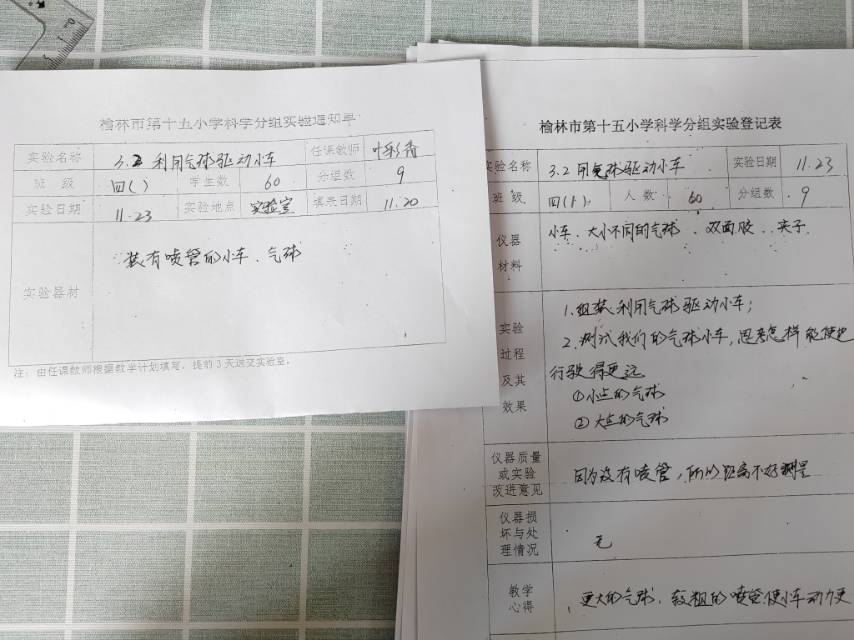 榆林市第十五小学科学分组实验通知单
实验名称 3.2 利用气球驱动小车 任课教师 叶彩青
班 级 四( ) 学生数 60 分组数 9
实验日期 11.23 实验地点 实验室 填表日期 11.20
实验器材 装有喷管的小车、气球
注：由任课教师根据教学计划填写，提前3天送交实验室。
榆林市第十五小学科学分组实验登记表
实验名称 3.2 用气球驱动小车 实验日期 11.23
班 级 四(1). 人 数 60 分组数 9
仪器
材料
小车、大小不同的气球、双面胶、夹子
实验
过程
及其
效果
1.组装利用气球驱动小车；
2.测试我们的气球小车,思考怎样能使它
行驶得更远
①小点的气球
②大点的气球
仪器质量
或实验
改进意见
因为没有喷管，所以距离不好测量
仪器损
坏与处
理情况
无
教学
心得
更大的气球、较粗的喷管使小车动力更